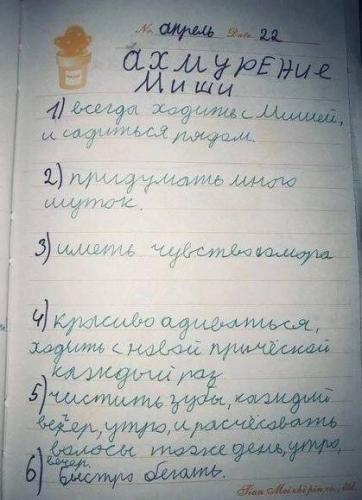 No. апрель Date. 22
ахмурение
Миши
1) всегда ходить с Мишей,
и садиться рядом.
2) придумать много
шуток.
3) иметь чувство юмора
4) красиво адиваться,
ходить с новой причёской
каждый раз
5) чистить зубы, каждый
вечер, утро, и расчёсовать
волосы тоже день, утро,
вечер.
6) быстро бегать.